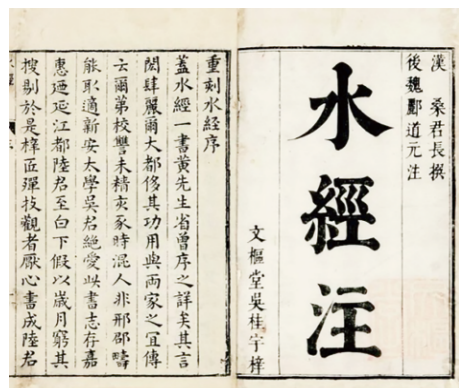 漢　桑君長撰
後魏酈道元注
水經注
文樞堂吳桂宇梓
重刻水经序
蓋水經一書黄先生省曾序之詳矣其言
閎肆麗爾大都侈其功用與兩家之宜傳
云爾第校讐未精亥豕時混人非邢邵疇
能取適新安太學吳君絶愛此書志存嘉
惠廼延江都陸君至白下假以歲月窮其
搜剔於是梓匠殫技觀者厭心書成陸君